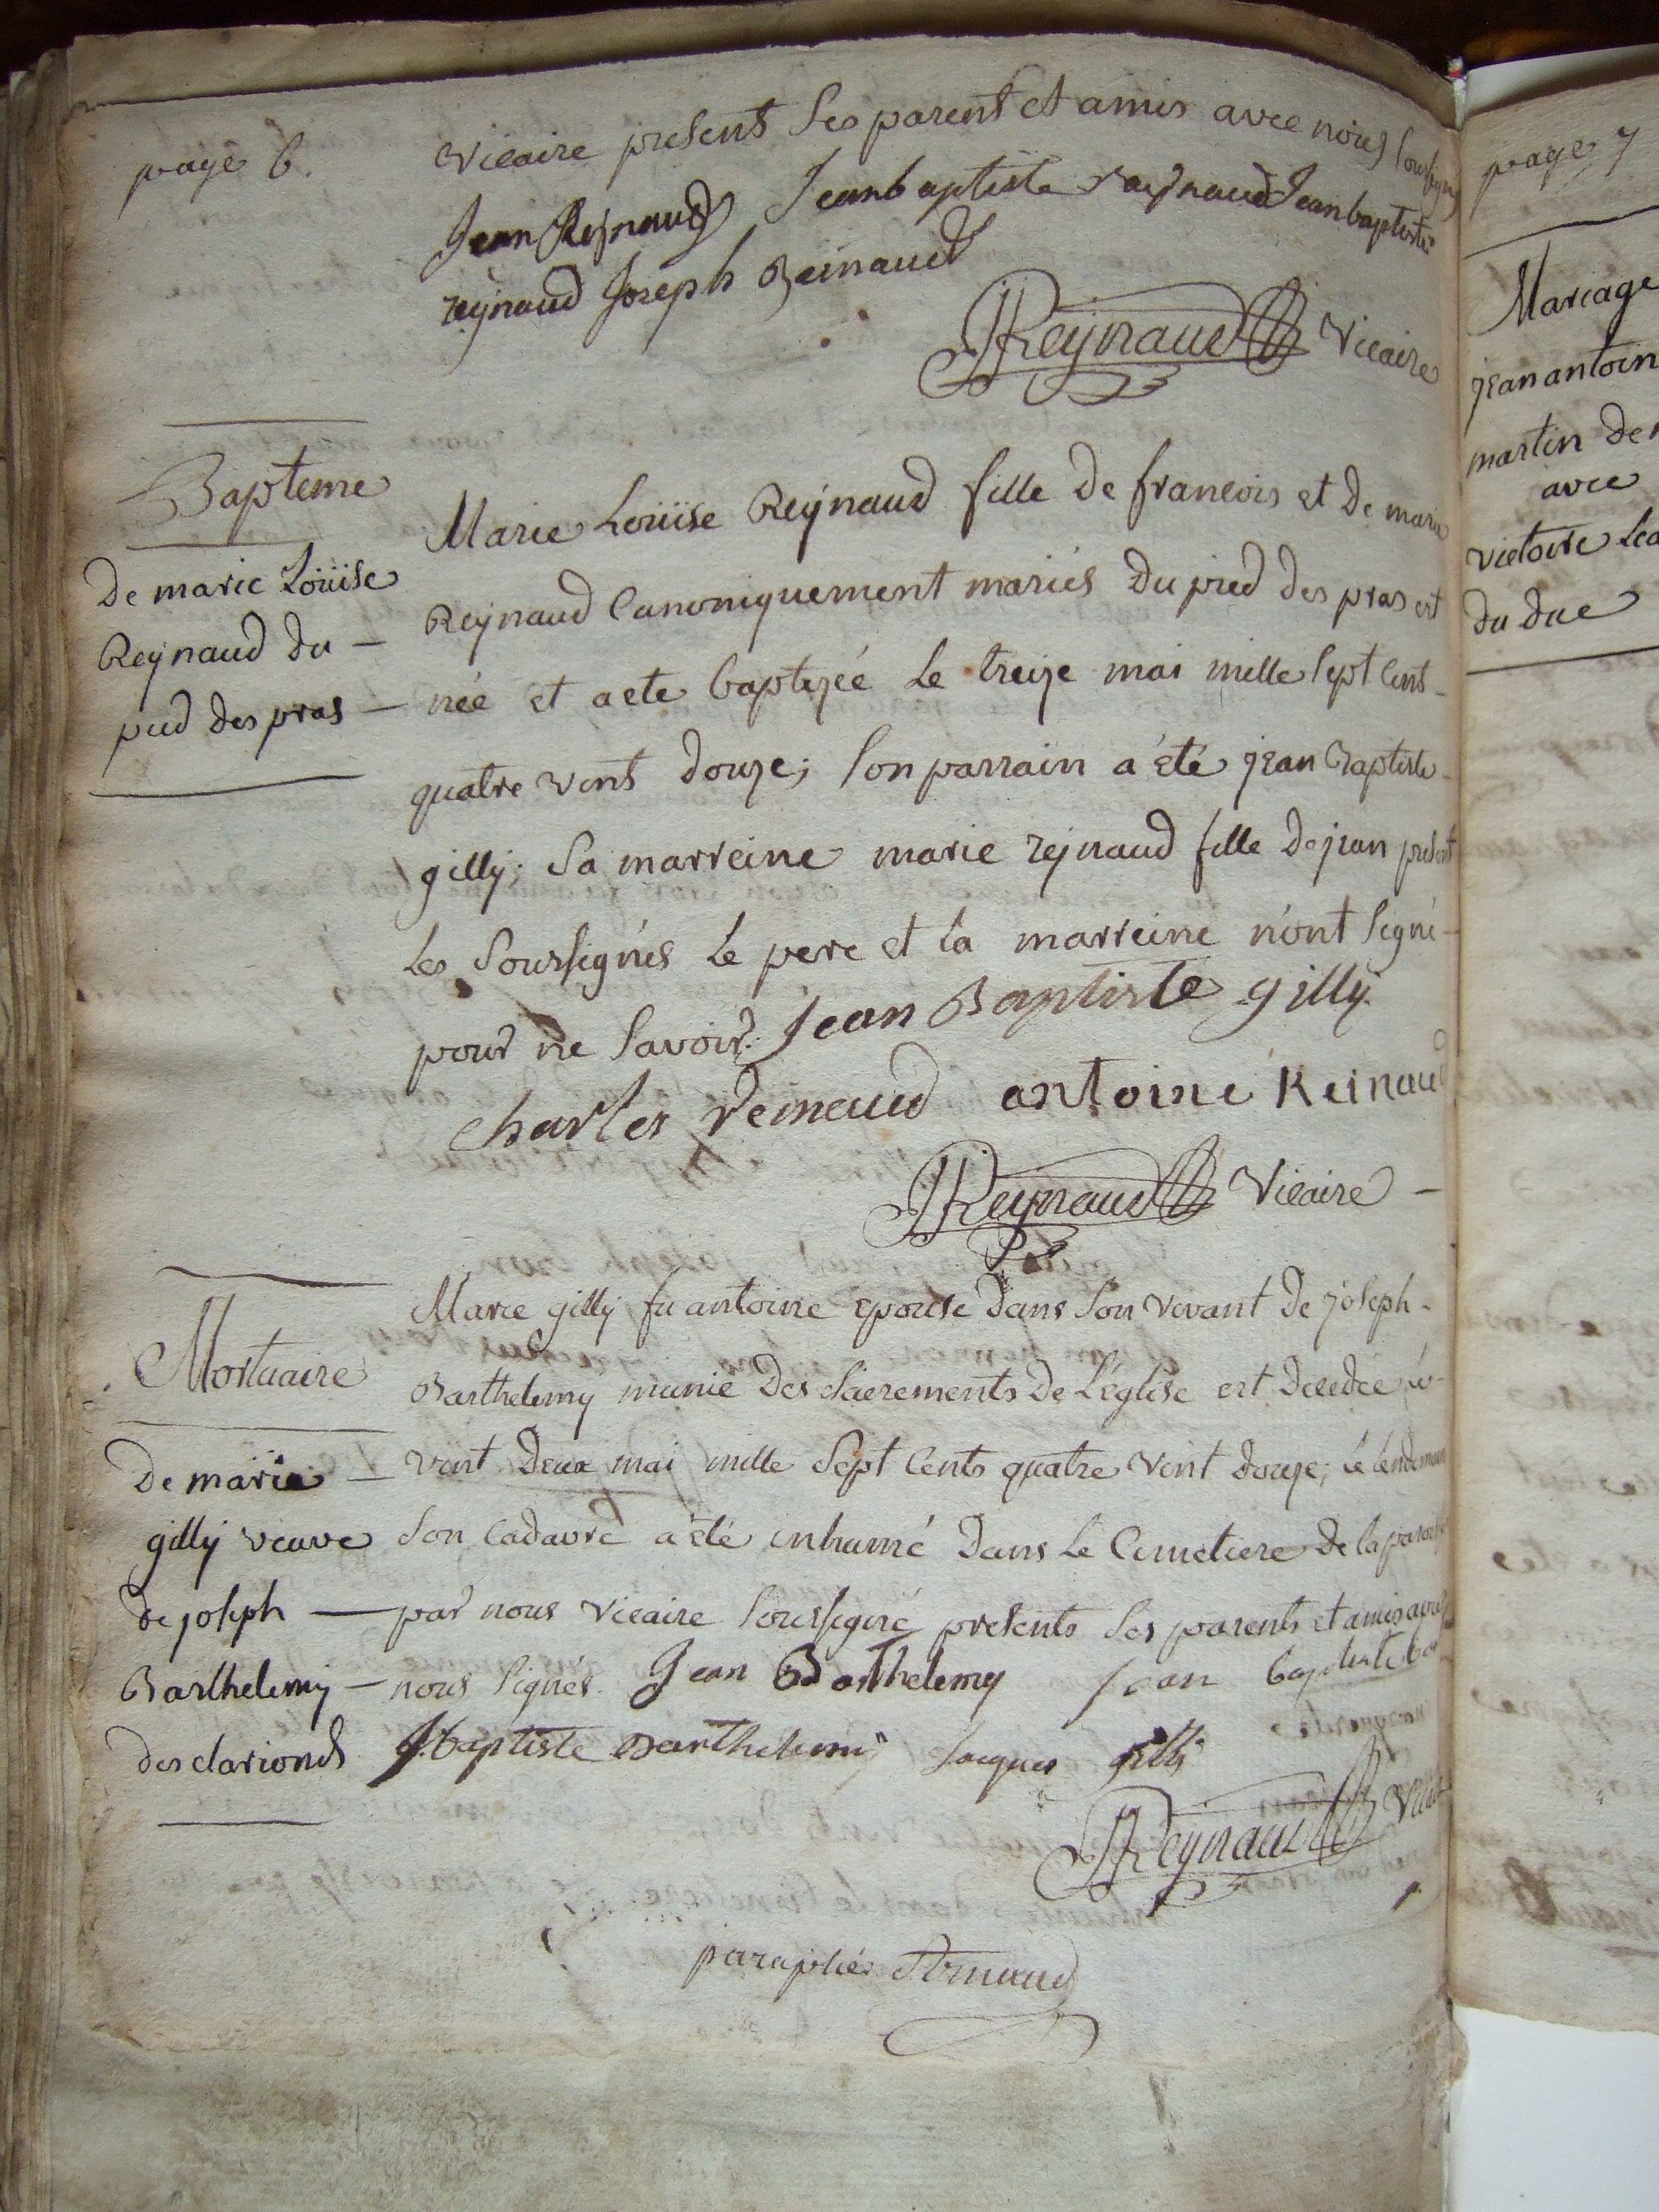 page 6.
vicaire presents ses parent et amis avec nous soussignés
Jean Reynaud Jean baptiste raynaud Jean baptiste
reynaud Joseph Reinaud
JReynaud Vicaire
Bapteme
De marie Loüise
Reynaud du —
pied des pras —
Marie Loüise Reynaud fille De francois et De marie
Reynaud Canoniquement mariés Du pied des pras est
née et a ete baptizée Le treize mai mille sept cent
quatre vint douze; son parrain a été jean Baptiste
gilly; sa marreine marie reynaud fille De jean présents
les soussignés Le pere et la marreine n'ont signé
pour ne savoir. Jean Baptiste gilly
charles Reinaud antoine Reinaud
JReynaud Vicaire —
Mortuaire
De marie —
gilly veuve
de joseph —
Barthelemy —
des clarionds
Marie gilly fu antoine epouse Dans son vivant De joseph
Barthelemy munie Des sacrements De L'église est Decedée le
vint Deux mai mille sept cents quatre vint douze; le lendemain
son cadavre a été inhumé Dans Le Cimetiere De la paroisse
par nous vicaire soussigné presents ses parents et amis avec
nous signés. Jean Barthelemy jean baptiste
J baptiste Barthelemi Jacques gilli
JReynaud Vicaire
paraphé Arnaud
page 7
Mariage
jean antoin
martin de
avec
victoire
du duc